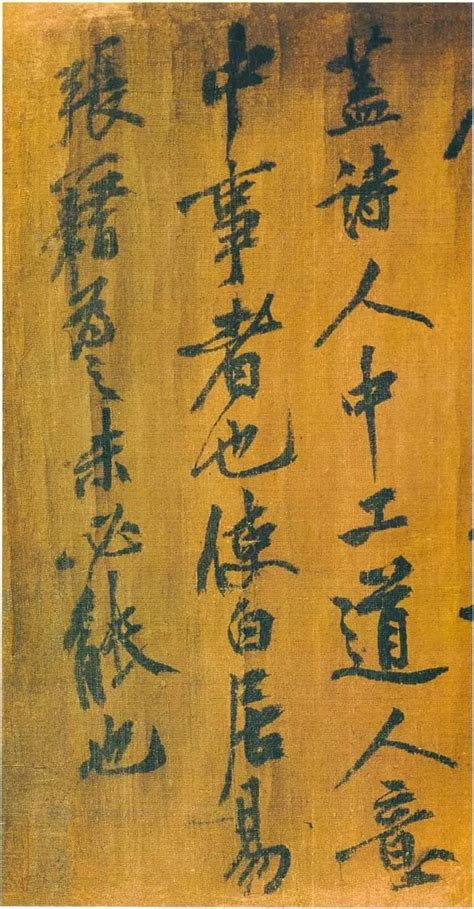 盖诗人中工道人意
中事者也使白居易
张籍为之未必能也